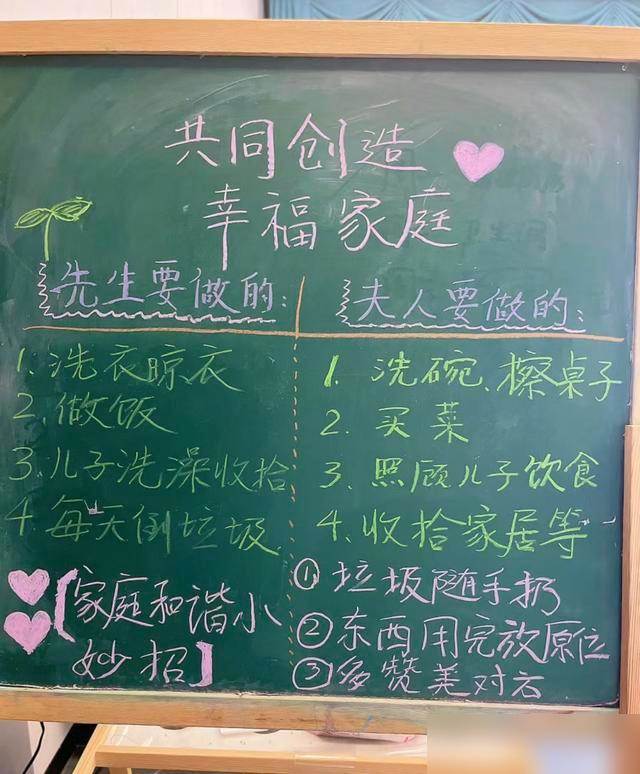 共同创造
幸福家庭
先生要做的:
1.洗衣晾衣
2.做饭
3.儿子洗澡收拾
4每天倒垃圾
夫人要做的:
1.洗碗、擦桌子
2.买菜
3.照顾儿子饮食
4.收拾家居等
【家庭和谐小
妙招】
①垃圾随手扔
②东西用完放原位
③多赞美对方